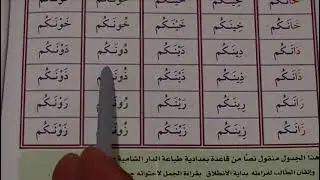 خَانَكُم خِينَكُم خَيْنَكُم خُونَكُم خَوْنَكُم
دَانَكُم دِينَكُم دَيْنَكُم دُونَكُم دَوْنَكُم
ذَانَكُم ذِينَكُم ذَيْنَكُم ذُونَكُم ذَوْنَكُم
رَانَكُم رِينَكُم رَيْنَكُم رُونَكُم رَوْنَكُم
زَانَكُم زِينَكُم زَيْنَكُم زَوْنَكُم
هذا الجدول منقول نصًا من قاعدة بغدادية طباعة الدار الشامية
وإتقان الطالب لقراءته بداية الانطلاق بقراءة الجمل لاحتوائه